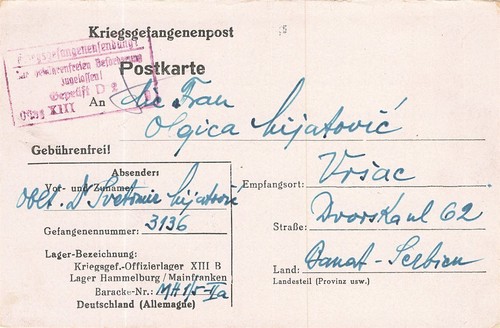 Kriegsgefangenenpost
Kriegsgefangenensendung!
Zur gebührenfreien Beförderung
zugelassen!
Geprüft D 2
Oflag XIII
Postkarte
An die Frau
Olgica Mijatović
Gebührenfrei!
Absender:
Vor- und Zuname:
Oblt. Dr Svetomir Mijatović
Gefangenennummer: 3136
Lager-Bezeichnung:
Kriegsgef.-Offizierlager XIII B
Lager Hammelburg / Mainfranken
Baracke-Nr.: MH1/5-IIa
Deutschland (Allemagne)
Empfangsort: Vršac
Straße: Dvorska ul 62
Land: Banat-Serbien
Landesteil (Provinz usw.)